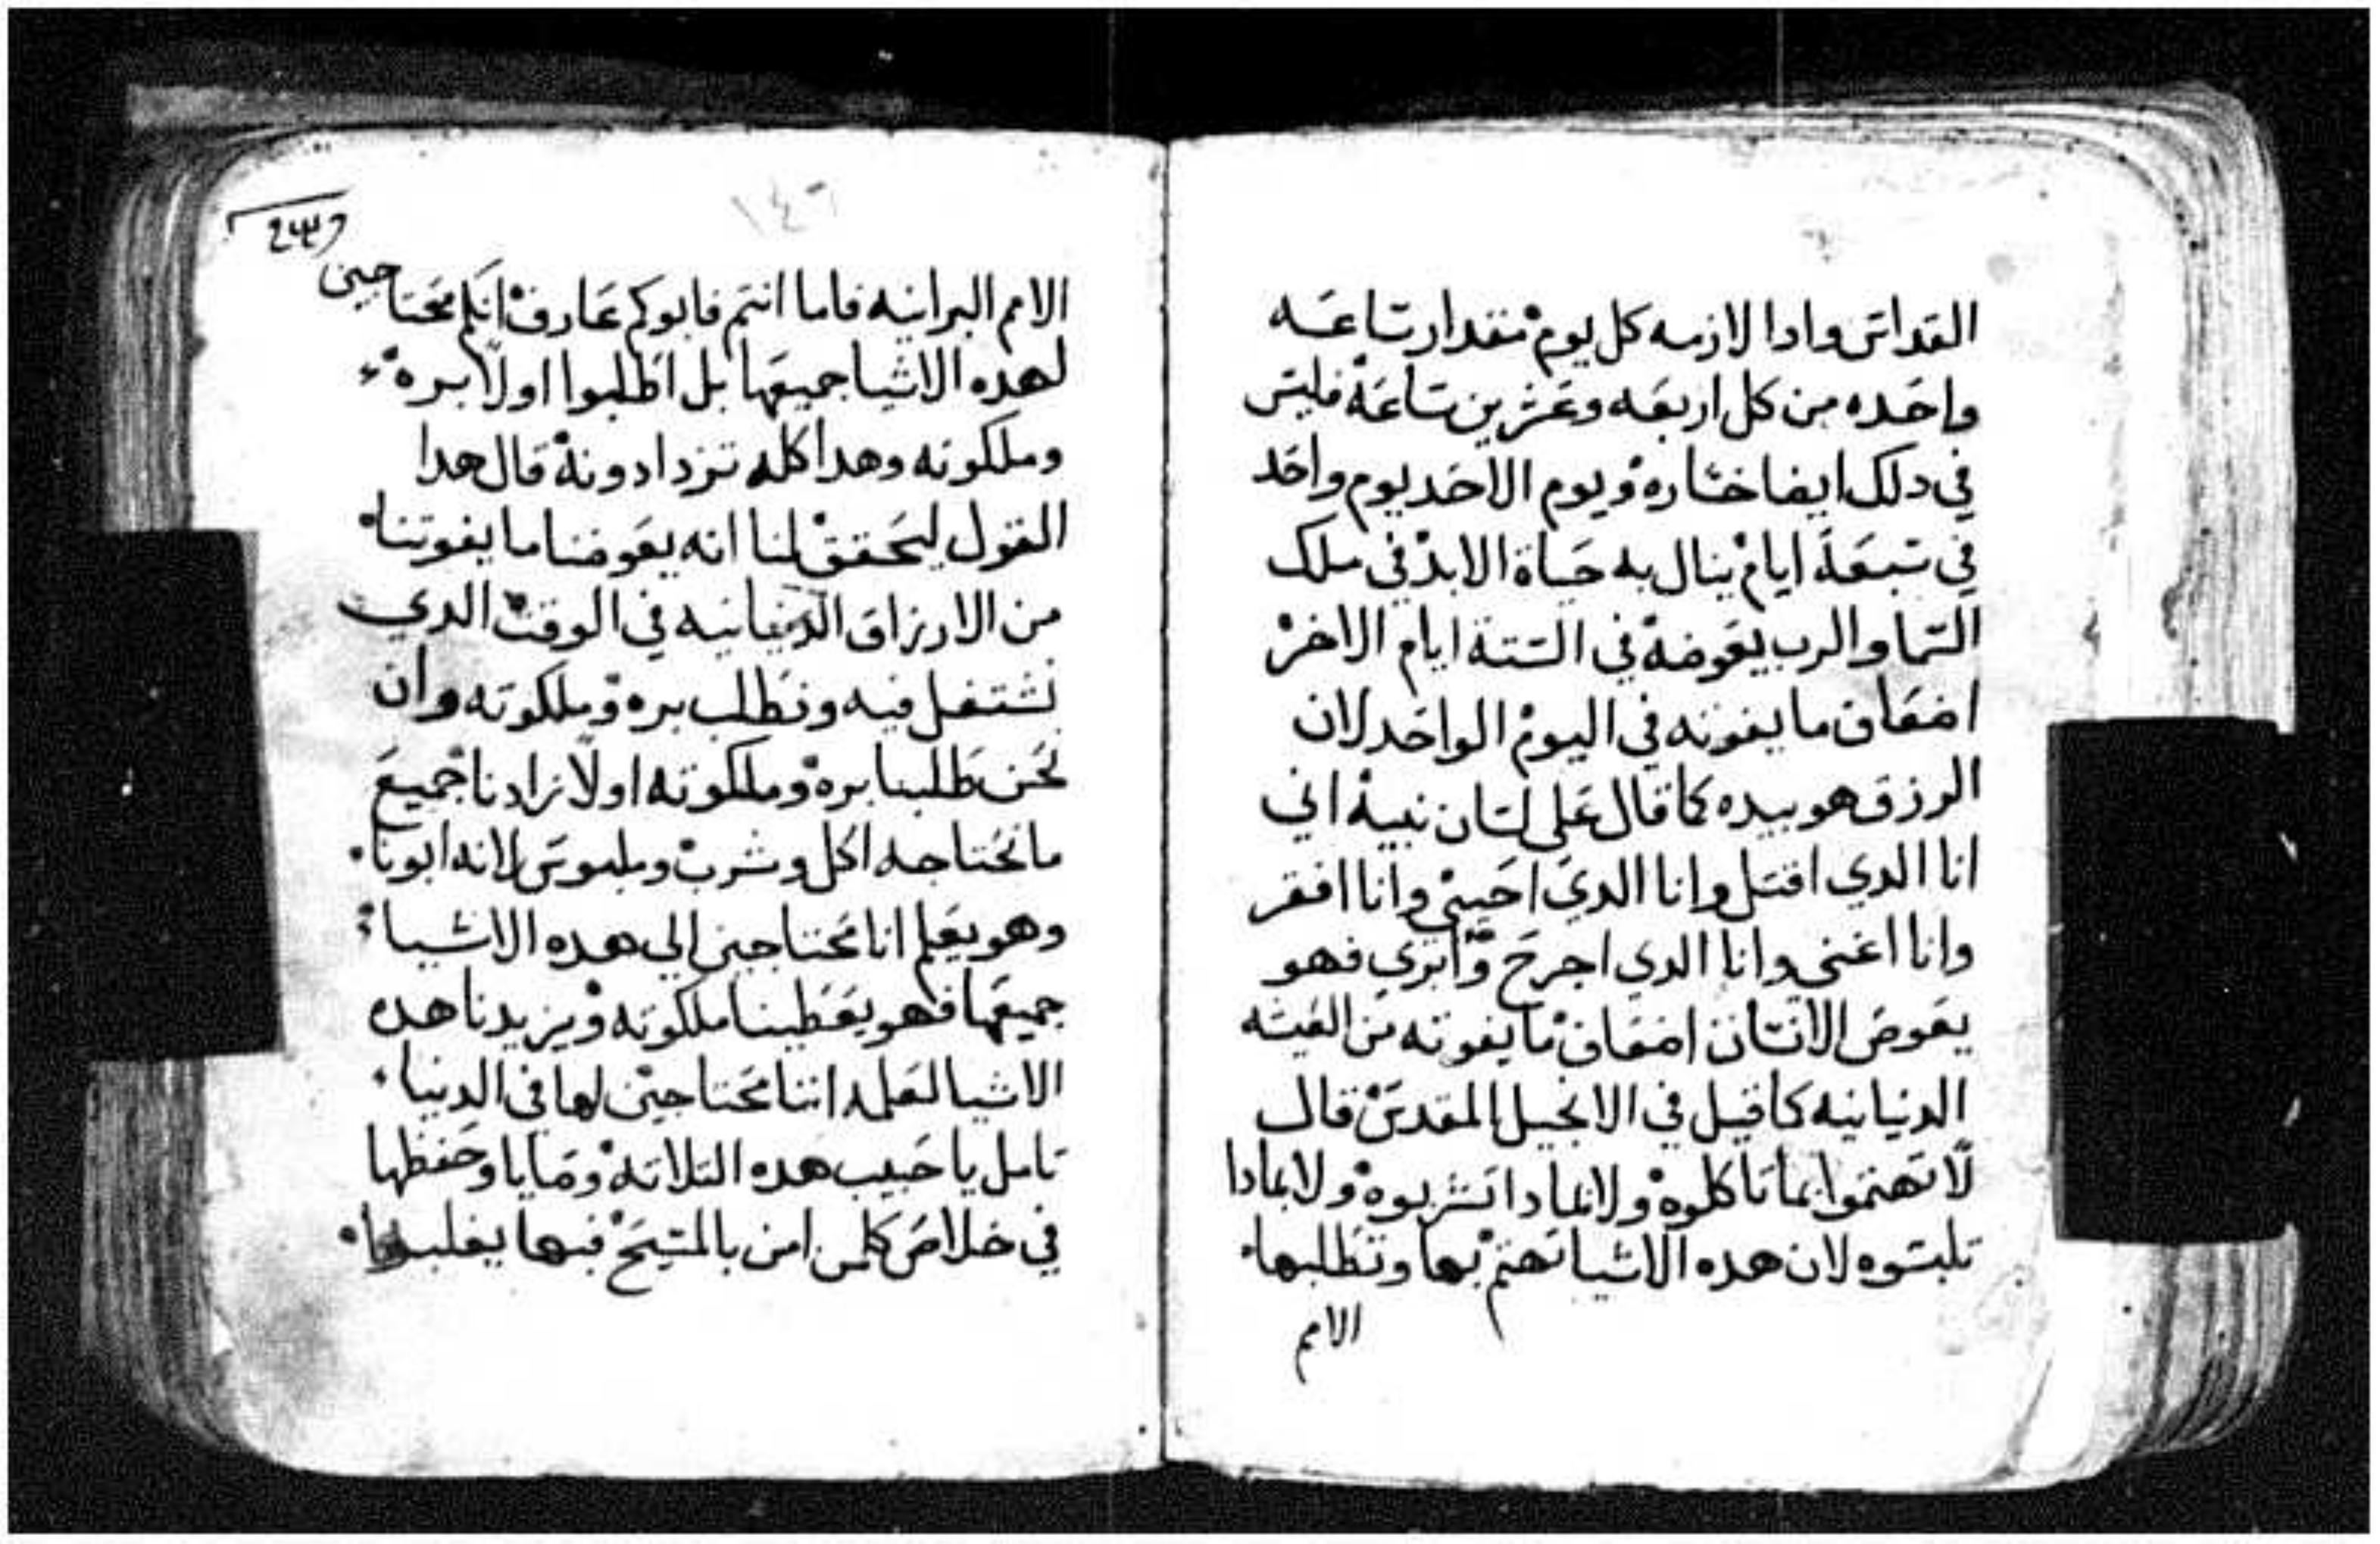 القداس وادا لازمه كل يوم مقدار ساعه
واحده من كل اربعه وعشرين ساعة فليس
في دلك ايضا خساره ويوم الاحد يوم واحد
في سبعة ايام ينال به حياة الابد في ملك
السما والرب يعوضه في الستة ايام الاخر
اضعاف ما يفوته في اليوم الواحد لان
الرزق هو بيده كما قال على لسان نبيه اني
انا الدي اقتل وانا الدي احيي وانا افقر
وانا اغني وانا الدي اجرح وابري فهو
يعوض الانسان اضعاف ما يفوته من العيشه
الدنيانيه كما قيل في الانجيل المقدس قال
لا تهتموا بما تاكلوه ولا بمادا تشربوه ولا بمادا
تلبسوه لان هده الاشيا تهتم بها وتطلبها
الامم
١٤٦
الامم البرانيه فاما انتم فابوكم عارف انكم محتاجين
لهده الاشيا جميعها بل اطلبوا اولا بره
وملكوته وهدا كله تزدادونه قال هدا
القول ليحقق لنا انه يعوضنا ما يفوتنا
من الارزاق الدنيانيه في الوقت الدي
نشتغل فيه ونطلب بره وملكوته وان
نحن طلبنا بره وملكوته اولا زادنا جميع
ما نحتاجه اكل وشرب وملبوس لانه ابونا
وهو يعلم انا محتاجين الي هده الاشيا
جميعها فهو يعطينا ملكوته ويزيدنا هده
الاشيا لعلمه اننا محتاجين لها في الدنيا
تامل يا حبيب هده التلاته وصايا وحفظها
في خلاص كلمن امن بالمسيح فبها يغلب